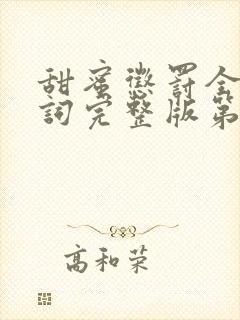 甜蜜懲罰全
詞完整版第
高和荣